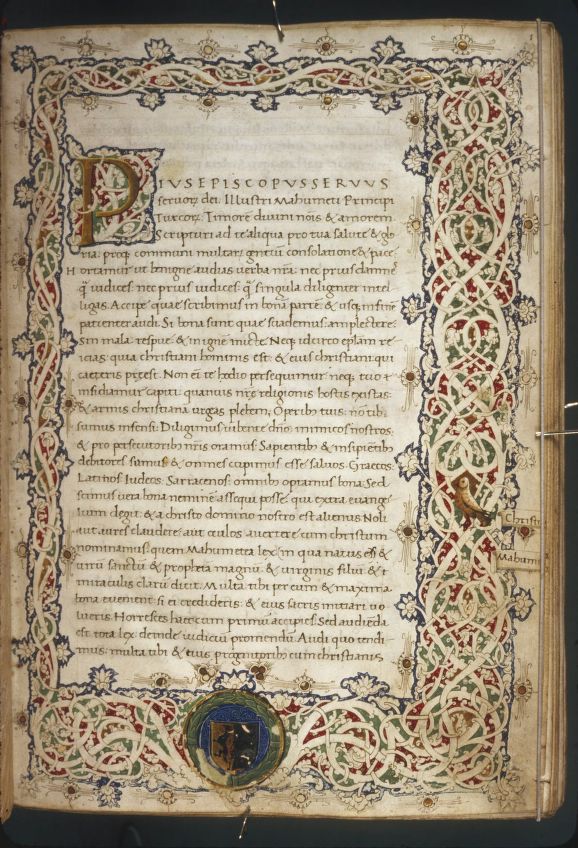 PIUS EPISCOPUS SERUUS
seruoꝝ dei. Illustri Mahumeti Principi
Turcoꝝ. Timorē diuini nōis & amorem.
Scripturi ad te aliqua pro tua salute & glo
ria: proqꝫ communi multaꝝ gentiū consolatione & pace
Hortamur ut benigne audias uerba nr̄a: nec prius damnes
q̄ iudices: nec prius iudices: q̄ singula diligenter intel
ligas. Accipe quae scribimus in bonā partē: & usqꝫ in finē
patienter audi. Si bona sunt quae suademus: amplectere.
Sin mala: respue & in ignē
icias: quia christiani hominis est: & eius christiani: qui
caeteris preest. Non eī te hodio persequimur: neqꝫ tuo
insidiamur capiti: quanuis nr̄e religionis hostis existas:
& armis christianā urgeas plebem. Operibꝰ tuis: nō tibi
sumus infensi. Diligimus iubente deo inimicos nostros:
& pro persecutoribꝰ nr̄is oramus. Sapientibꝰ & insipiētibꝰ
debitores sumus: & omnes cupimus esse saluos. Graecos
Latinos: Iudeos: Sarracenos: omnibꝰ optamus bona. Sed
scimus uera bona neminē assequi posse: qui extra euange
lium degit: & a christo domino nostro est alienus. Noli
aut aures claudere: aut oculos auertere: cum christum
nominamus: quem Mahumetea lex: in qua natus es: &
uirū sanctū & prophetā magnū: & uirginis filiū: & 
miraculis clarū dicit. Multa tibi per eum & maxima
bona euenient: si ei credideris: & eius sacris initiari uo
lueris. Horresces haec cum primū accipies. Sed audiēda
est tota lex: deinde iudiciū promendū. Audi quo tendi
mus: multa tibi & eius progenitoribꝰ cum christianis
Christi
Mahumi